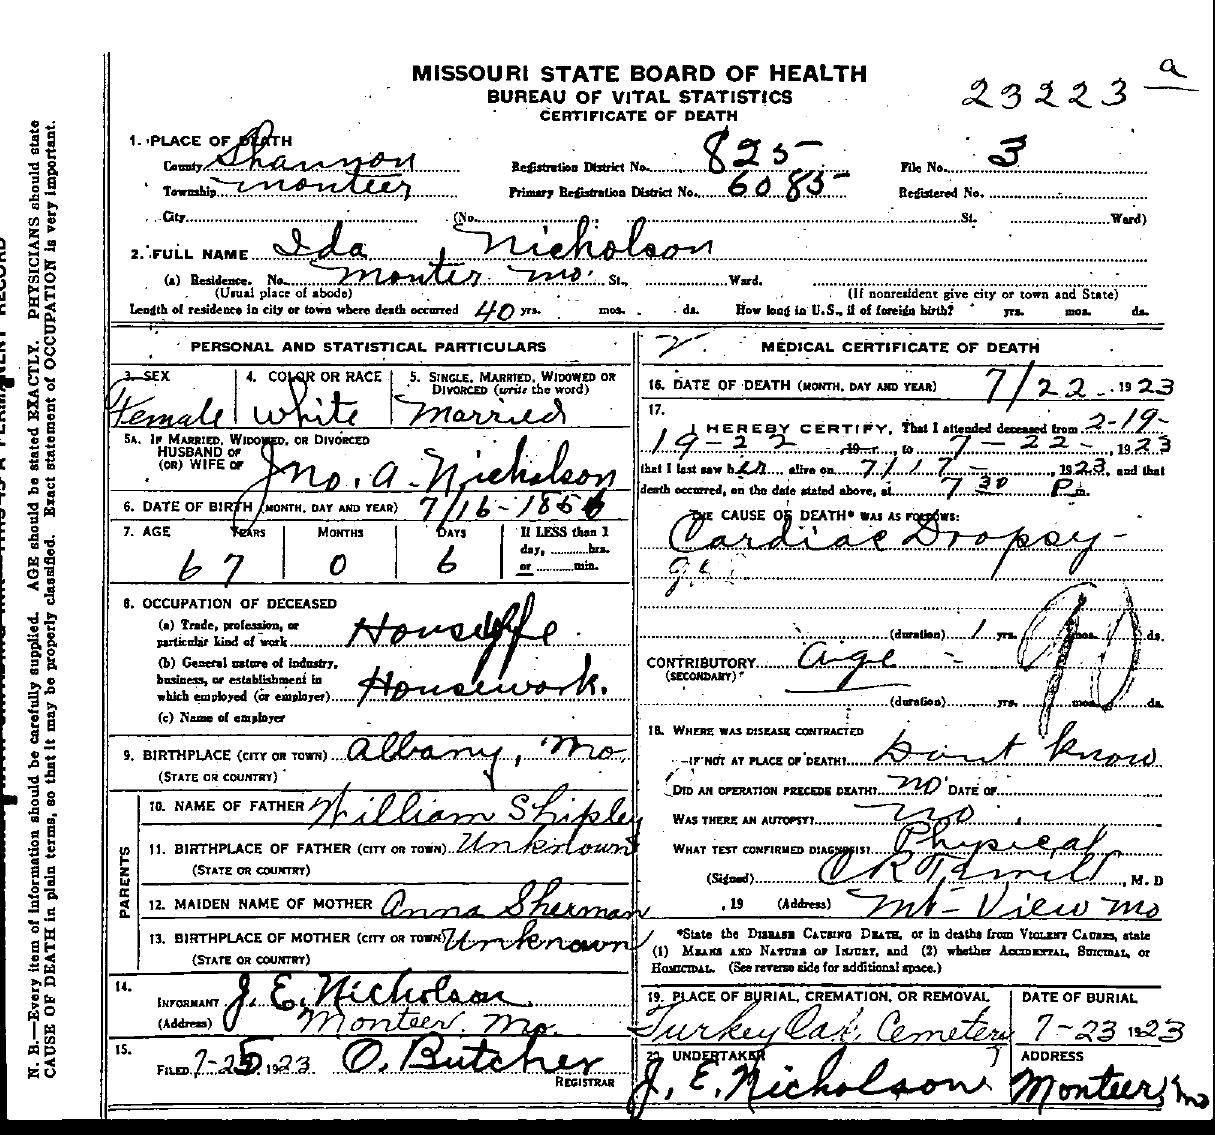 MISSOURI STATE BOARD OF HEALTH
BUREAU OF VITAL STATISTICS
CERTIFICATE OF DEATH
23223 a
1. PLACE OF DEATH
County Shannon Registration District No. 825 File No. 3
Township Monteer Primary Registration District No. 6085 Registered No.
City (No. St. Ward)
2. FULL NAME Ida Nicholson
(a) Residence. No. Monter Mo. St., Ward.
(Usual place of abode) (If nonresident give city or town and State)
Length of residence in city or town where death occurred 40 yrs. mos. ds. How long in U.S., if of foreign birth? yrs. mos. ds.
PERSONAL AND STATISTICAL PARTICULARS
3. SEX 4. COLOR OR RACE 5. SINGLE, MARRIED, WIDOWED OR
DIVORCED (write the word)
Female White Married
5A. IF MARRIED, WIDOWED, OR DIVORCED
HUSBAND OF
(OR) WIFE OF Jno. A. Nicholson
6. DATE OF BIRTH (MONTH, DAY AND YEAR) 7/16-1856
7. AGE YEARS MONTHS DAYS If LESS than 1
day, hrs.
or min.
67 0 6
8. OCCUPATION OF DECEASED
(a) Trade, profession, or
particular kind of work Housewife
(b) General nature of industry,
business, or establishment in
which employed (or employer) Housework.
(c) Name of employer
9. BIRTHPLACE (CITY OR TOWN) Albany, Mo.
(STATE OR COUNTRY)
PARENTS
10. NAME OF FATHER William Shipley
11. BIRTHPLACE OF FATHER (CITY OR TOWN) Unknown
(STATE OR COUNTRY)
12. MAIDEN NAME OF MOTHER Anna Sherman
13. BIRTHPLACE OF MOTHER (CITY OR TOWN) Unknown
(STATE OR COUNTRY)
14.
INFORMANT J. E. Nicholson
(Address) Monteer Mo.
15.
FILED 7-25, 1923 O. Butcher
REGISTRAR
2 MEDICAL CERTIFICATE OF DEATH
16. DATE OF DEATH (MONTH, DAY AND YEAR) 7/22 1923
17.
I HEREBY CERTIFY, That I attended deceased from 2-19-
19-22, 19, to 7-22-, 1923
that I last saw her alive on 7/17-, 1923, and that
death occurred, on the date stated above, at 7 30 P m.
THE CAUSE OF DEATH* WAS AS FOLLOWS:
Cardiac Dropsy-
(duration) 1 yrs. mos. ds.
90
CONTRIBUTORY Age -
(SECONDARY)
(duration) yrs. mos. ds.
18. WHERE WAS DISEASE CONTRACTED
IF NOT AT PLACE OF DEATH? Dont know
DID AN OPERATION PRECEDE DEATH? no DATE OF
WAS THERE AN AUTOPSY? no
WHAT TEST CONFIRMED DIAGNOSIS? Physical
(Signed) , M. D
, 19 (Address) Mt-View Mo
*State the DISEASE CAUSING DEATH, or in deaths from VIOLENT CAUSES, state
(1) MEANS AND NATURE OF INJURY, and (2) whether ACCIDENTAL, SUICIDAL, or
HOMICIDAL. (See reverse side for additional space.)
19. PLACE OF BURIAL, CREMATION, OR REMOVAL DATE OF BURIAL
Turkey Oak Cemetery 7-23 1923
UNDERTAKER ADDRESS
J. E. Nicholson Monteer, Mo
N. B.—Every item of information should be carefully supplied. AGE should be stated EXACTLY. PHYSICIANS should state
CAUSE OF DEATH in plain terms, so that it may be properly classified. Exact statement of OCCUPATION is very important.